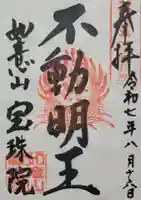 奉拝
令和七年八月十六日
不動明王
如意山
宝珠院